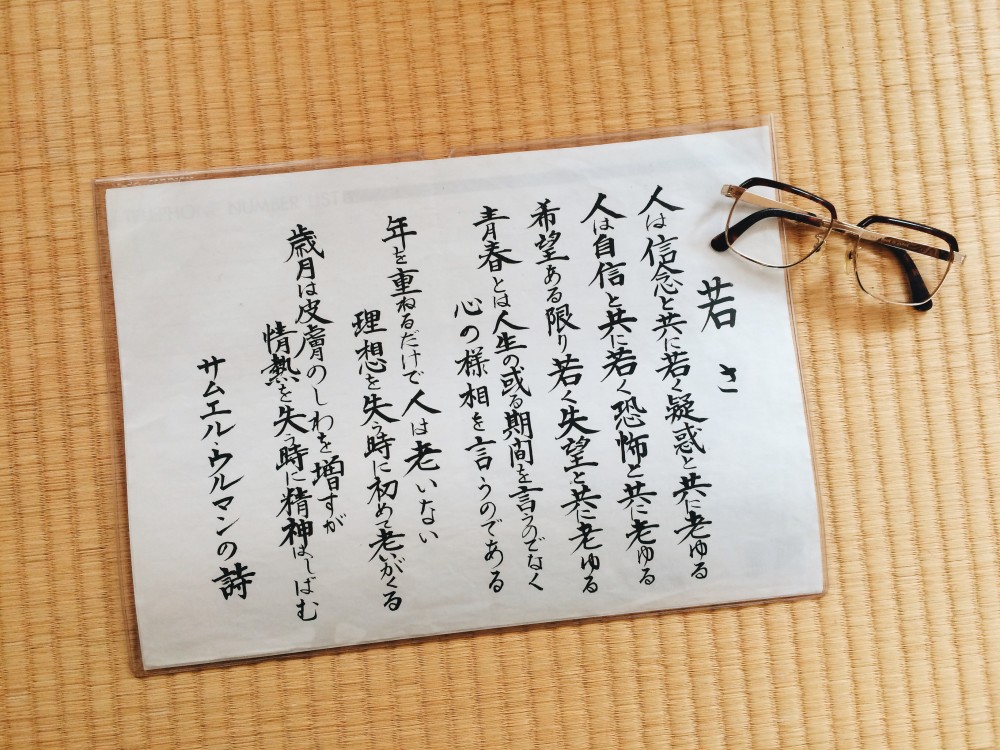 若さ
人は信念と共に若く疑惑と共に老ゆる
人は自信と共に若く恐怖と共に老ゆる
希望ある限り若く失望と共に老ゆる
青春とは人生の或る期間を言うのでなく
心の様相を言うのである
年を重ねるだけで人は老いない
理想を失う時に初めて老いがくる
歳月は皮膚のしわを増すが
情熱を失う時に精神はしぼむ
サムエル・ウルマンの詩